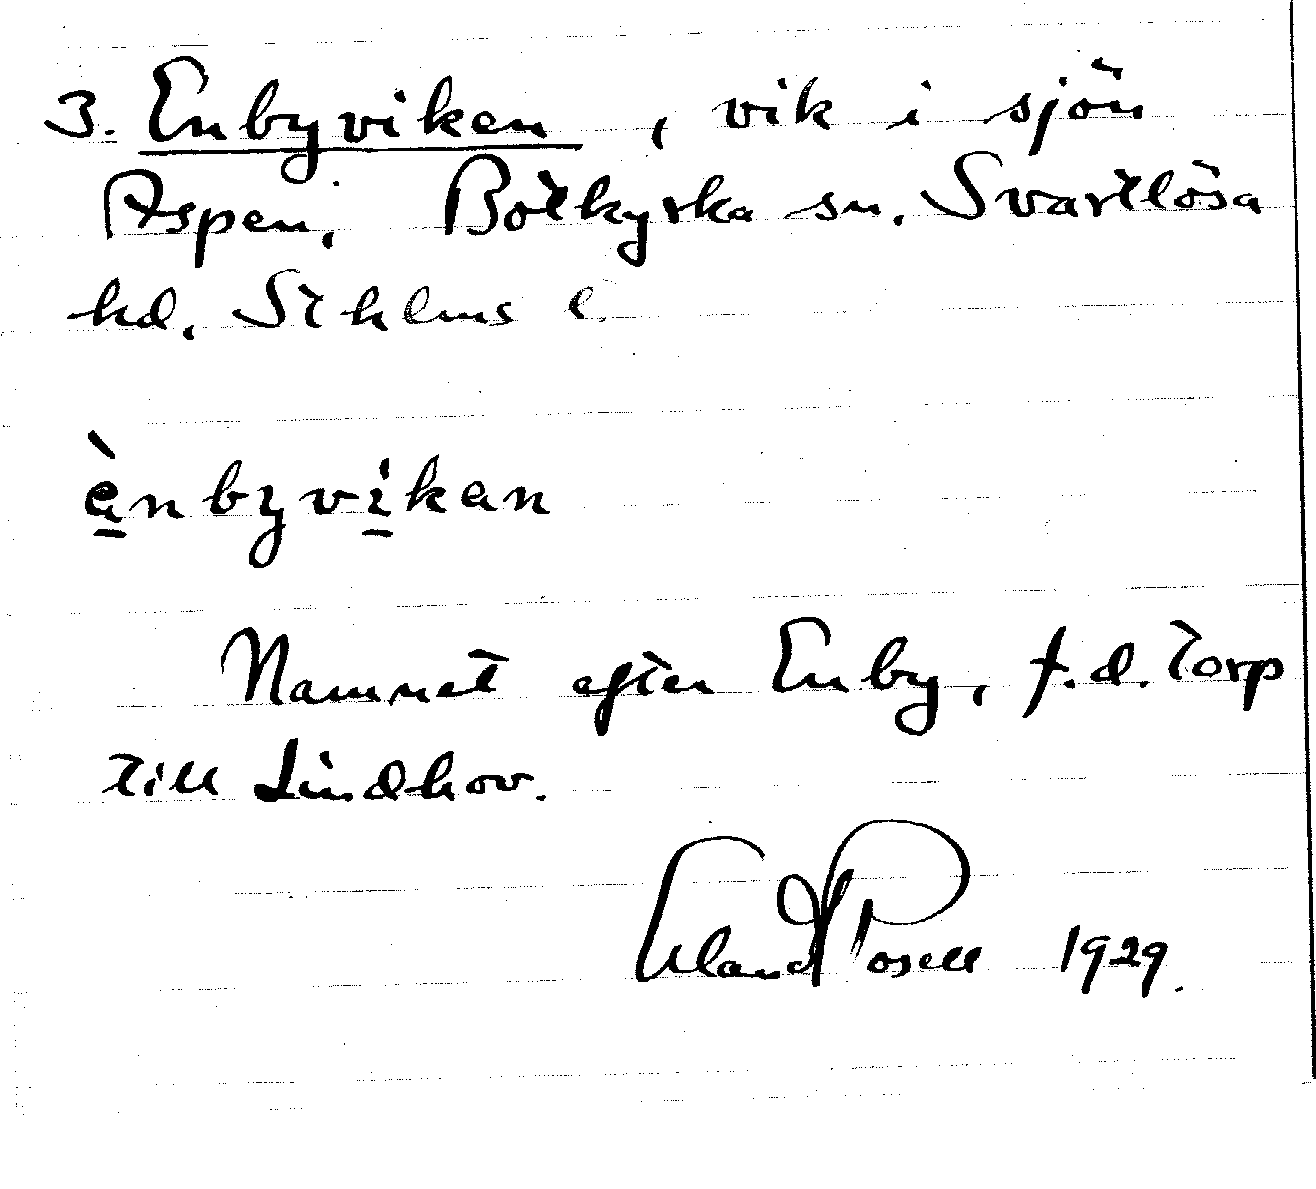 3. Enbyviken, vik i sjön
Aspen, Botkyrka sn. Svartlösa
hd. Sthlms l.
ènbyvikan
Namnet efter Enby, f.d. torp
till Lindhov.
Erland Rosell 1929.